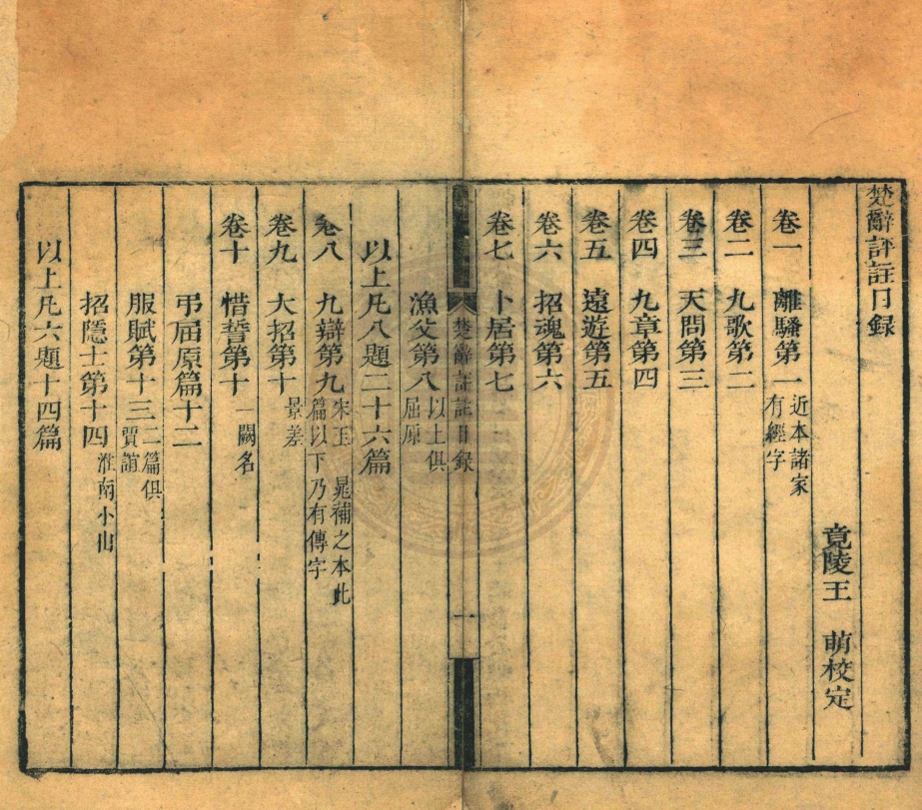 楚辭評註目錄
竟陵王 萌校定
卷一 離騷第一 近本諸家有經字
卷二 九歌第二
卷三 天問第三
卷四 九章第四
卷五 遠遊第五
卷六 招魂第六
卷七 卜居第七
楚辭評註目錄 一
漁父第八 以上俱屈原
以上凡八題二十六篇
卷八 九辯第九 宋玉 晁補之本此篇以下乃有傳字
卷九 大招第十 景差
卷十 惜誓第十一 闕名
弔屈原篇十二
服賦第十三 二篇俱賈誼
招隱士第十四 淮南小山
以上凡六題十四篇